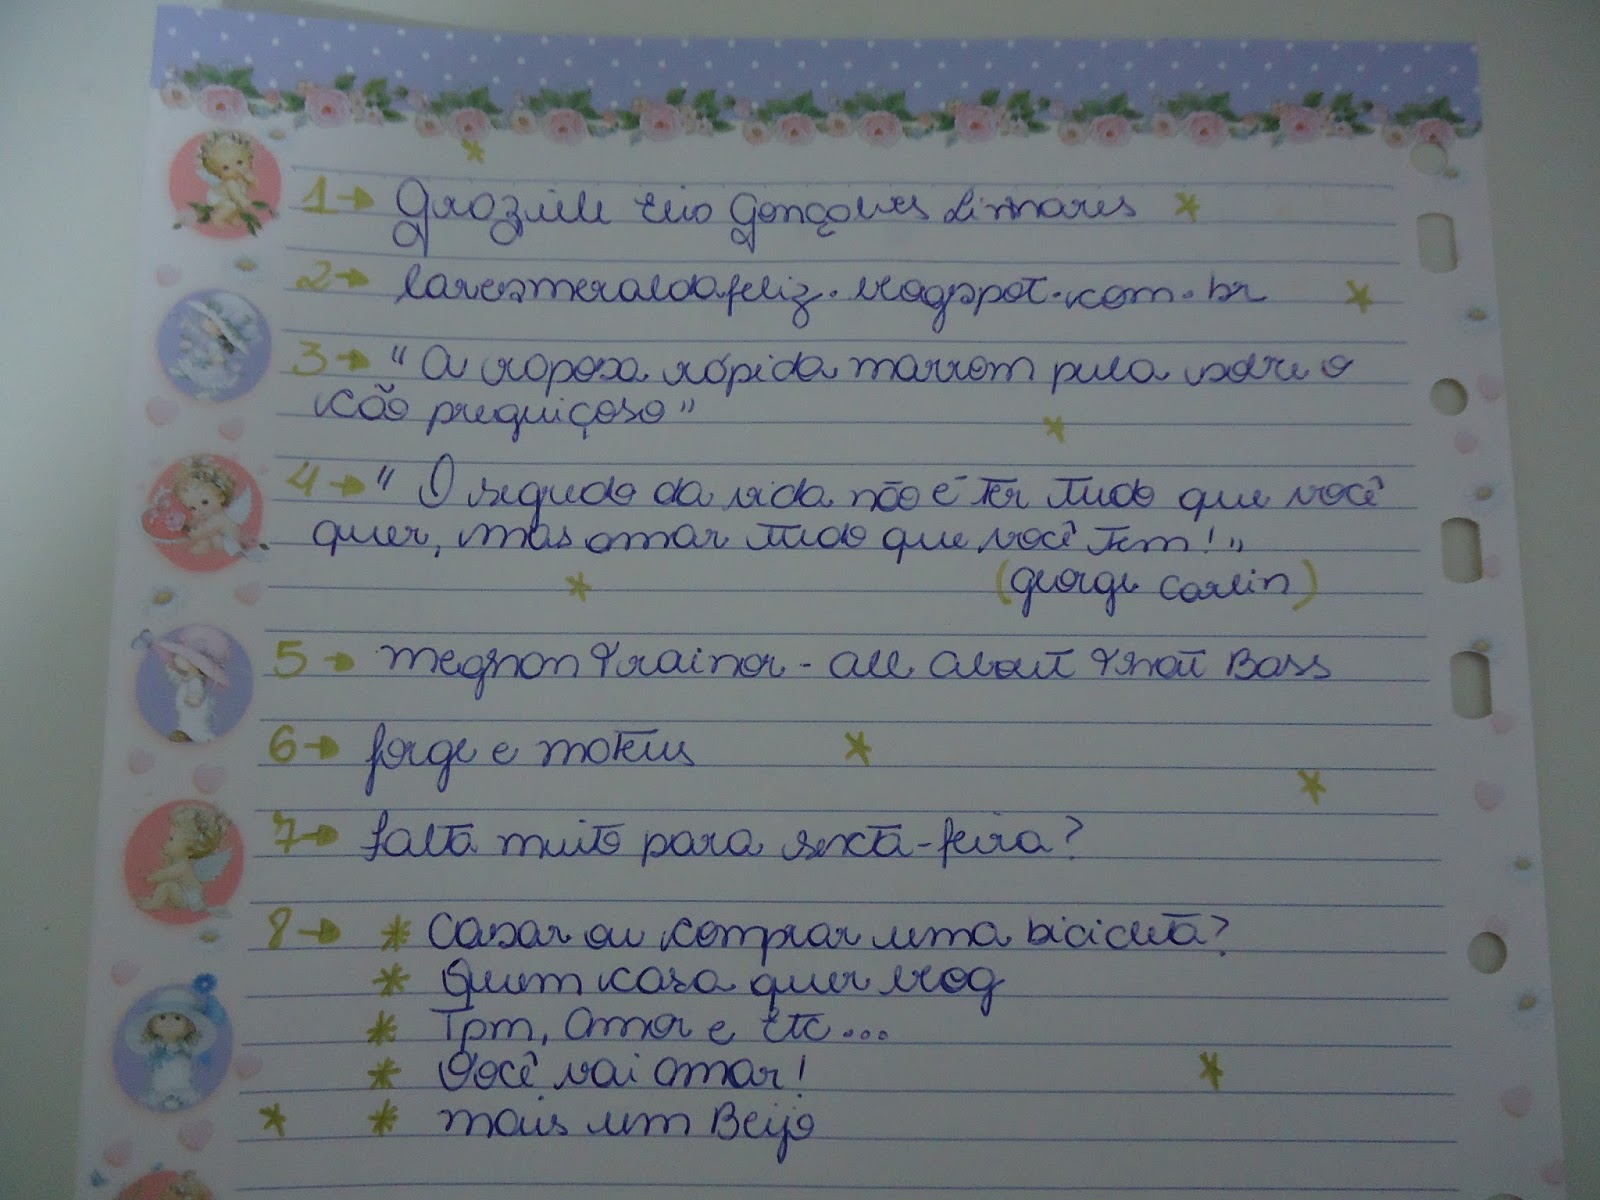 1→ Graziele Elis Gonçalves Linhares
2→ laresmeraldafeliz.blogspot.com.br
3→ "A raposa rápida marrom pula sobre o
cão preguiçoso"
4→ "O segredo da vida não é ter tudo que você
quer, mas amar tudo que você tem!"
(George Carlin)
5→ Meghan Trainor - All About That Bass
6→ Jorge e Mateus
7→ Falta muito para sexta-feira?
8→ * Casar ou comprar uma bicicleta?
* Quem casa quer blog
* Tpm, Amor e Etc...
* Você vai amar!
* Mais um Beijo